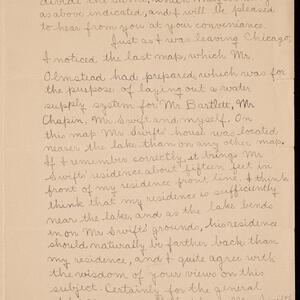 divide the same,
as above indicated, and I will be pleased
to hear from you at your convenience.
Just as I was leaving Chicago,
I noticed the last map, which Mr.
Olmstead had prepared, which was for
the purpose of laying out a water
supply system for Mr Bartlett, Mr
Chapin, Mr Swift and myself. On
this map Mr Swifts' house was located
nearer the lake than on any other map.
If I remember correctly, it brings Mr
Swifts residence about fifteen feet in
front of my residence front line. I think
think that my residence is sufficiently
near the lake, and as the lake bends
in on Mr Swift's grounds, his residence
should naturally be farther back than
my residence, and I quite agree with
the wisdom of your views on this
subject. Certainly for the general